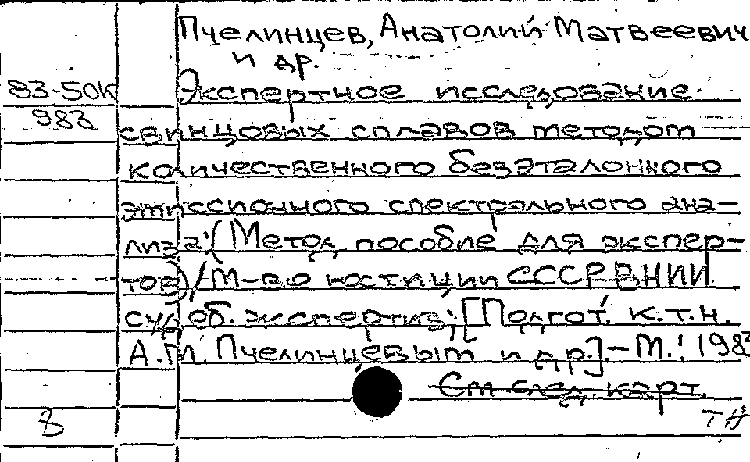 Пчелинцев, Анатолий Матвеевич
и др.
83-50К Экспертное исследование
983 свинцовых сплавов методом
количественного безэталонного
эмиссионного спектрального ана-
лиза: (Метод. пособие для экспер-
тов) / М-во юстиции СССР, ВНИИ
судеб. экспертиз; [Подгот. к.т.н.
А.М. Пчелинцевым и др.]. - М.: 1983
См след карт.
8